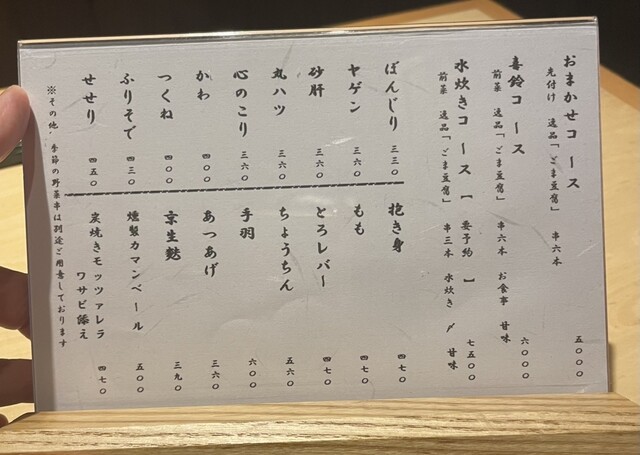 おまかせコース 五〇〇〇
先付け 逸品「ごま豆腐」 串六本
喜鈴コース 六〇〇〇
前菜 逸品「ごま豆腐」 串六本 お食事 甘味
水炊きコース [ 要予約 ] 七五〇〇
前菜 逸品「ごま豆腐」 串三本 水炊き 〆 甘味
ぼんじり 三三〇
ヤゲン 三六〇
砂肝 三六〇
丸ハツ 三六〇
心のこり 三六〇
かわ 四〇〇
つくね 四〇〇
ふりそで 四三〇
せせり 四五〇
抱き身 四七〇
もも 四七〇
とろレバー 四七〇
ちょうちん 五六〇
手羽 六〇〇
あつあげ 三六〇
京生麩 三九〇
燻製カマンベール 五〇〇
炭焼きモッツァレラ
ワサビ添え 四七〇
※その他、季節の野菜串は別途ご用意しております